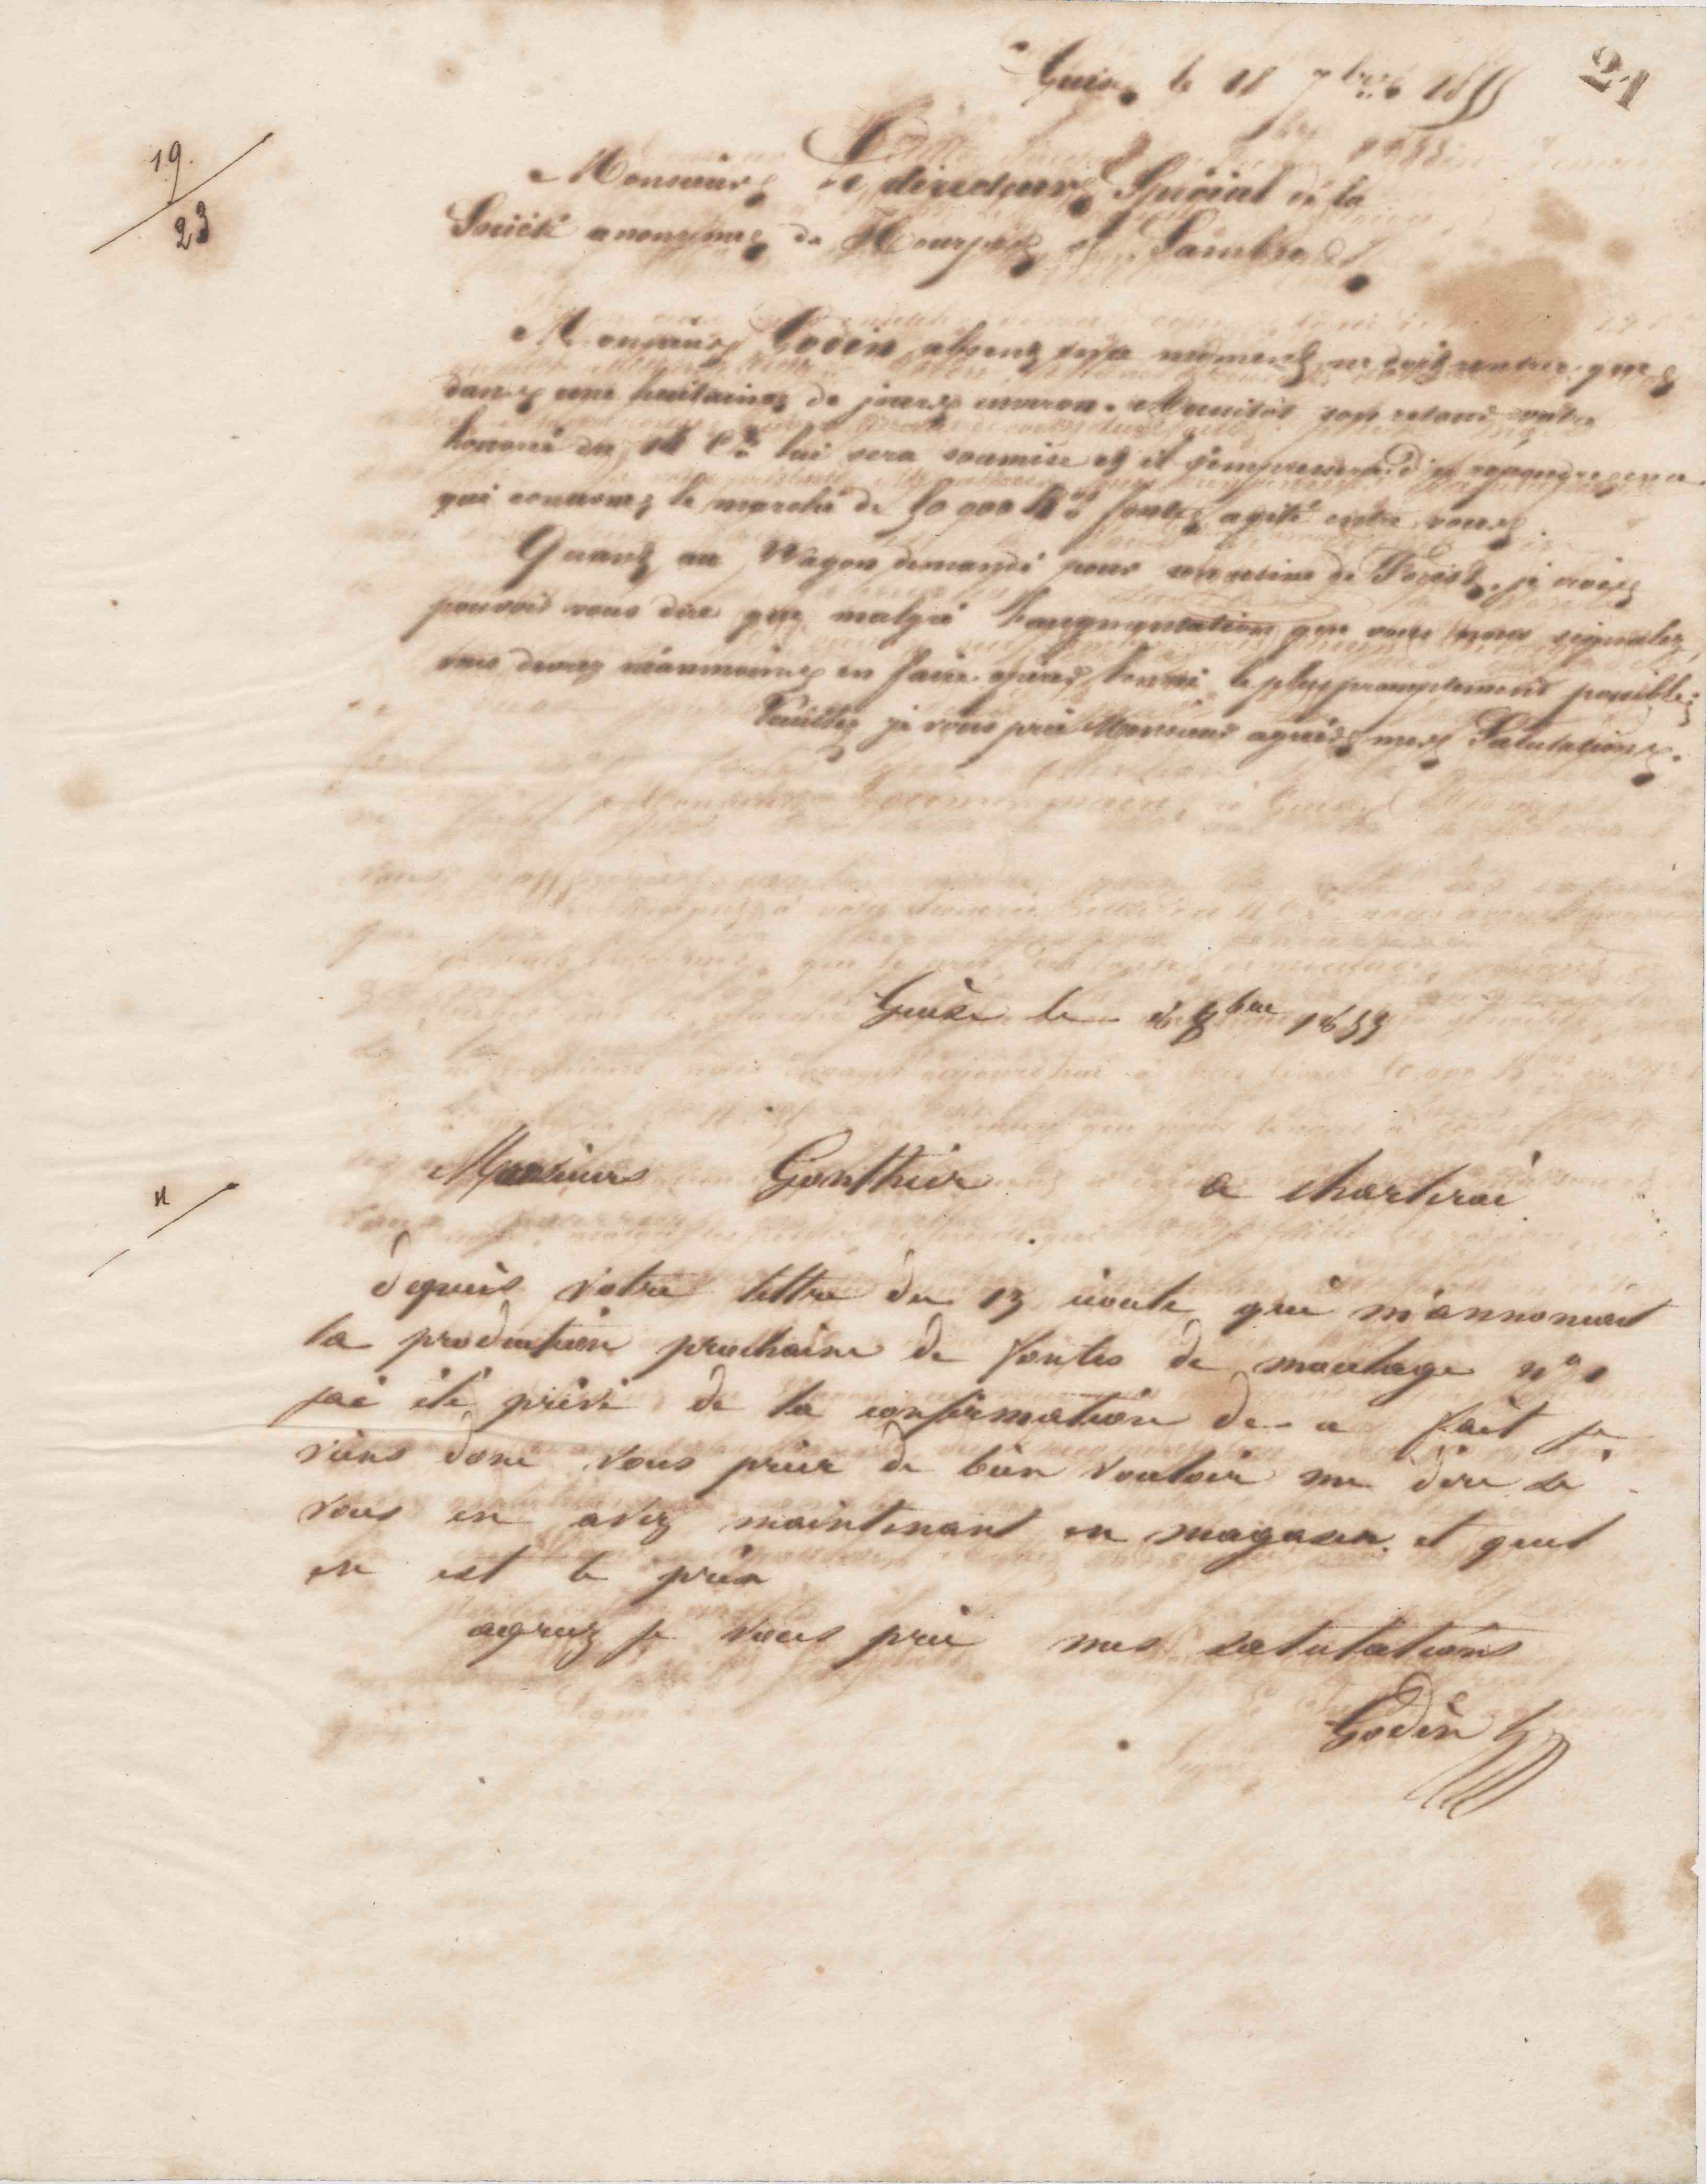 21
Guise le 18 7bre 1855
19
23
Monsieur Le directeur Spécial de la
Société anonyme de Hourpes s/ Sambre
Monsieur Godin absent en ce moment ne doit rentrer que
dans une huitaine de jours environ. Aussitôt son retour votre
honorée du 14 Ct lui sera soumise et il s'empressera d'y repondre en ce
qui concerne le marché de 50 000 Kos fontes agité entre vous.
Quant au Wagon demandé pour son usine de Forest, je crois
pouvoir vous dire que malgré l'augmentation que vous nous signalez,
vous devrez néanmoins en faire l'envoi le plus promptement possible.
Veuillez je vous prie Monsieur agréer mes Salutations.
Guise le 8bre 1855
Messieurs Gonthier a charleroi
depuis votre lettre du 13 écoulé qui m'annoncait
la production prochaine de fontes de moulage n° 1
jai été privé de la confirmation de ce fait je
viens donc vous prier de bien vouloir me dire si
vous en avez maintenant en magasin et quel
en est le prix
agreez je vous prie mes salutations
Godin